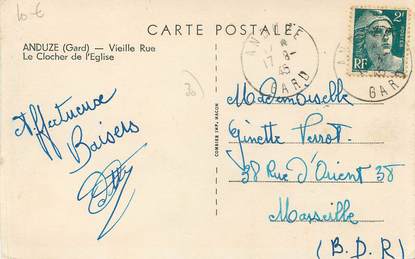 10 €
CARTE POSTALE
ANDUZE (Gard) - Vieille Rue
Le Clocher de l'Eglise
ANDUZE
17 -8-
45
GARD
2F
POSTES
RF
GARD
30
Affectueux
Baisers
COMBIER IMP. MACON
Mademoiselle
Ginette Perrot.
38 Rue d'Orient 38
Marseille
(B.D.R)